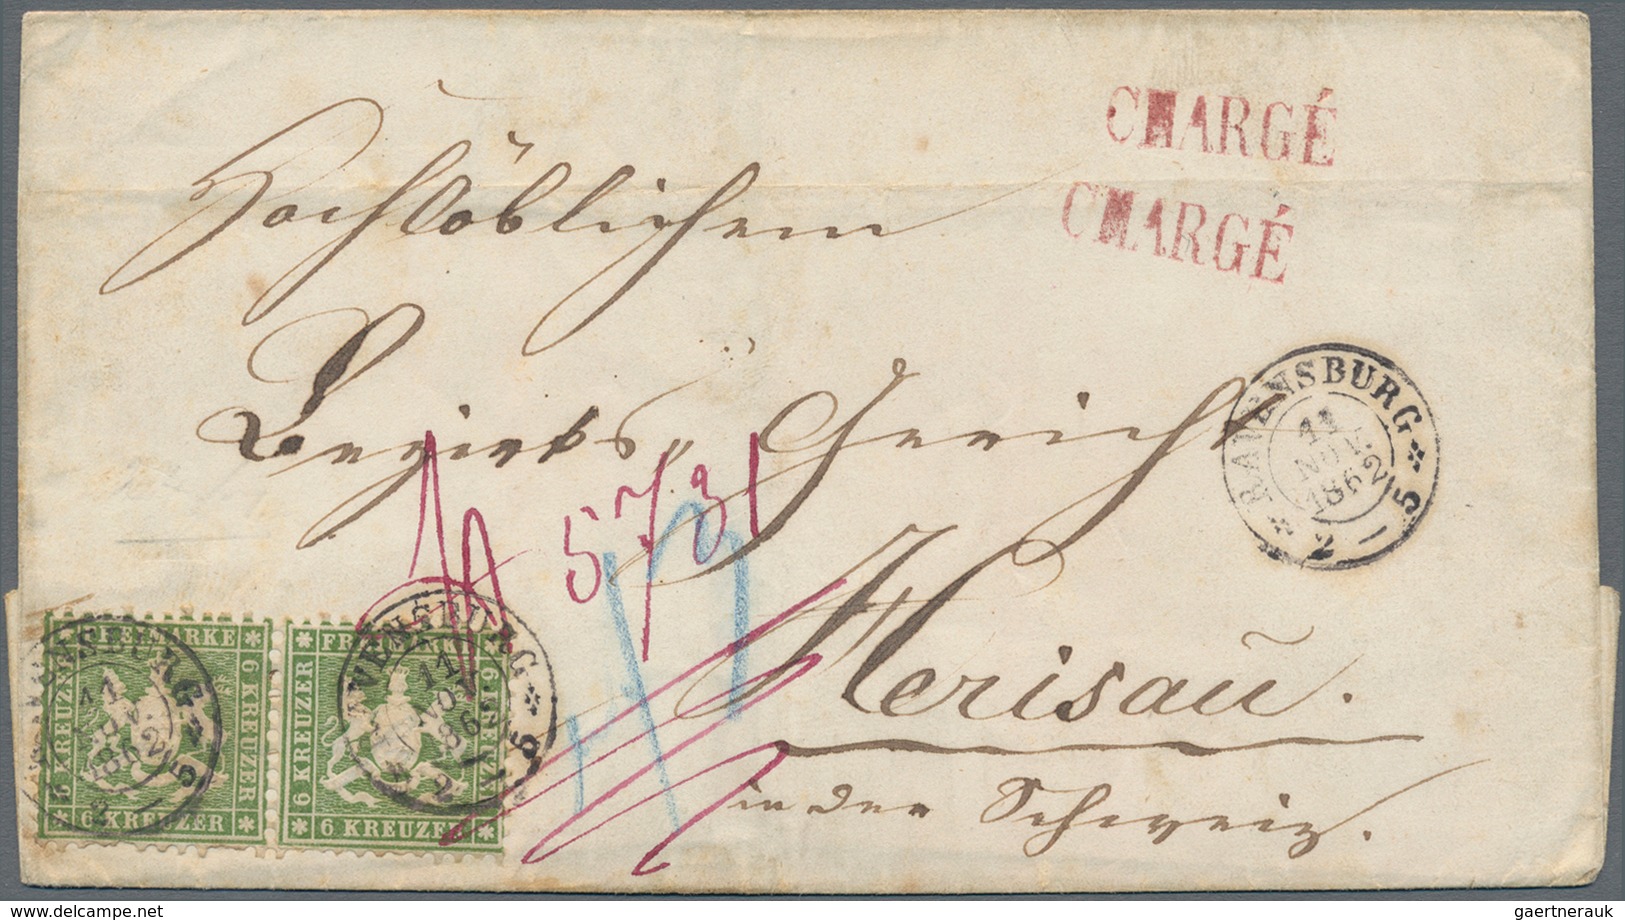 CHARGÉ
CHARGÉ
Hochlöblichem
Bezirks„ Gericht
Herisau.
in der Schweiz.
5731
RAVENSBURG
11
NOV.
1862
2 — 5
FREIMARKE
6 KREUZER
6 KREUZER
6 KREUZER
6 KREUZER
6 KREUZER
RAVENSBURG
11
NOV
1862
2 — 5
gaertnerauk / delcampe.net